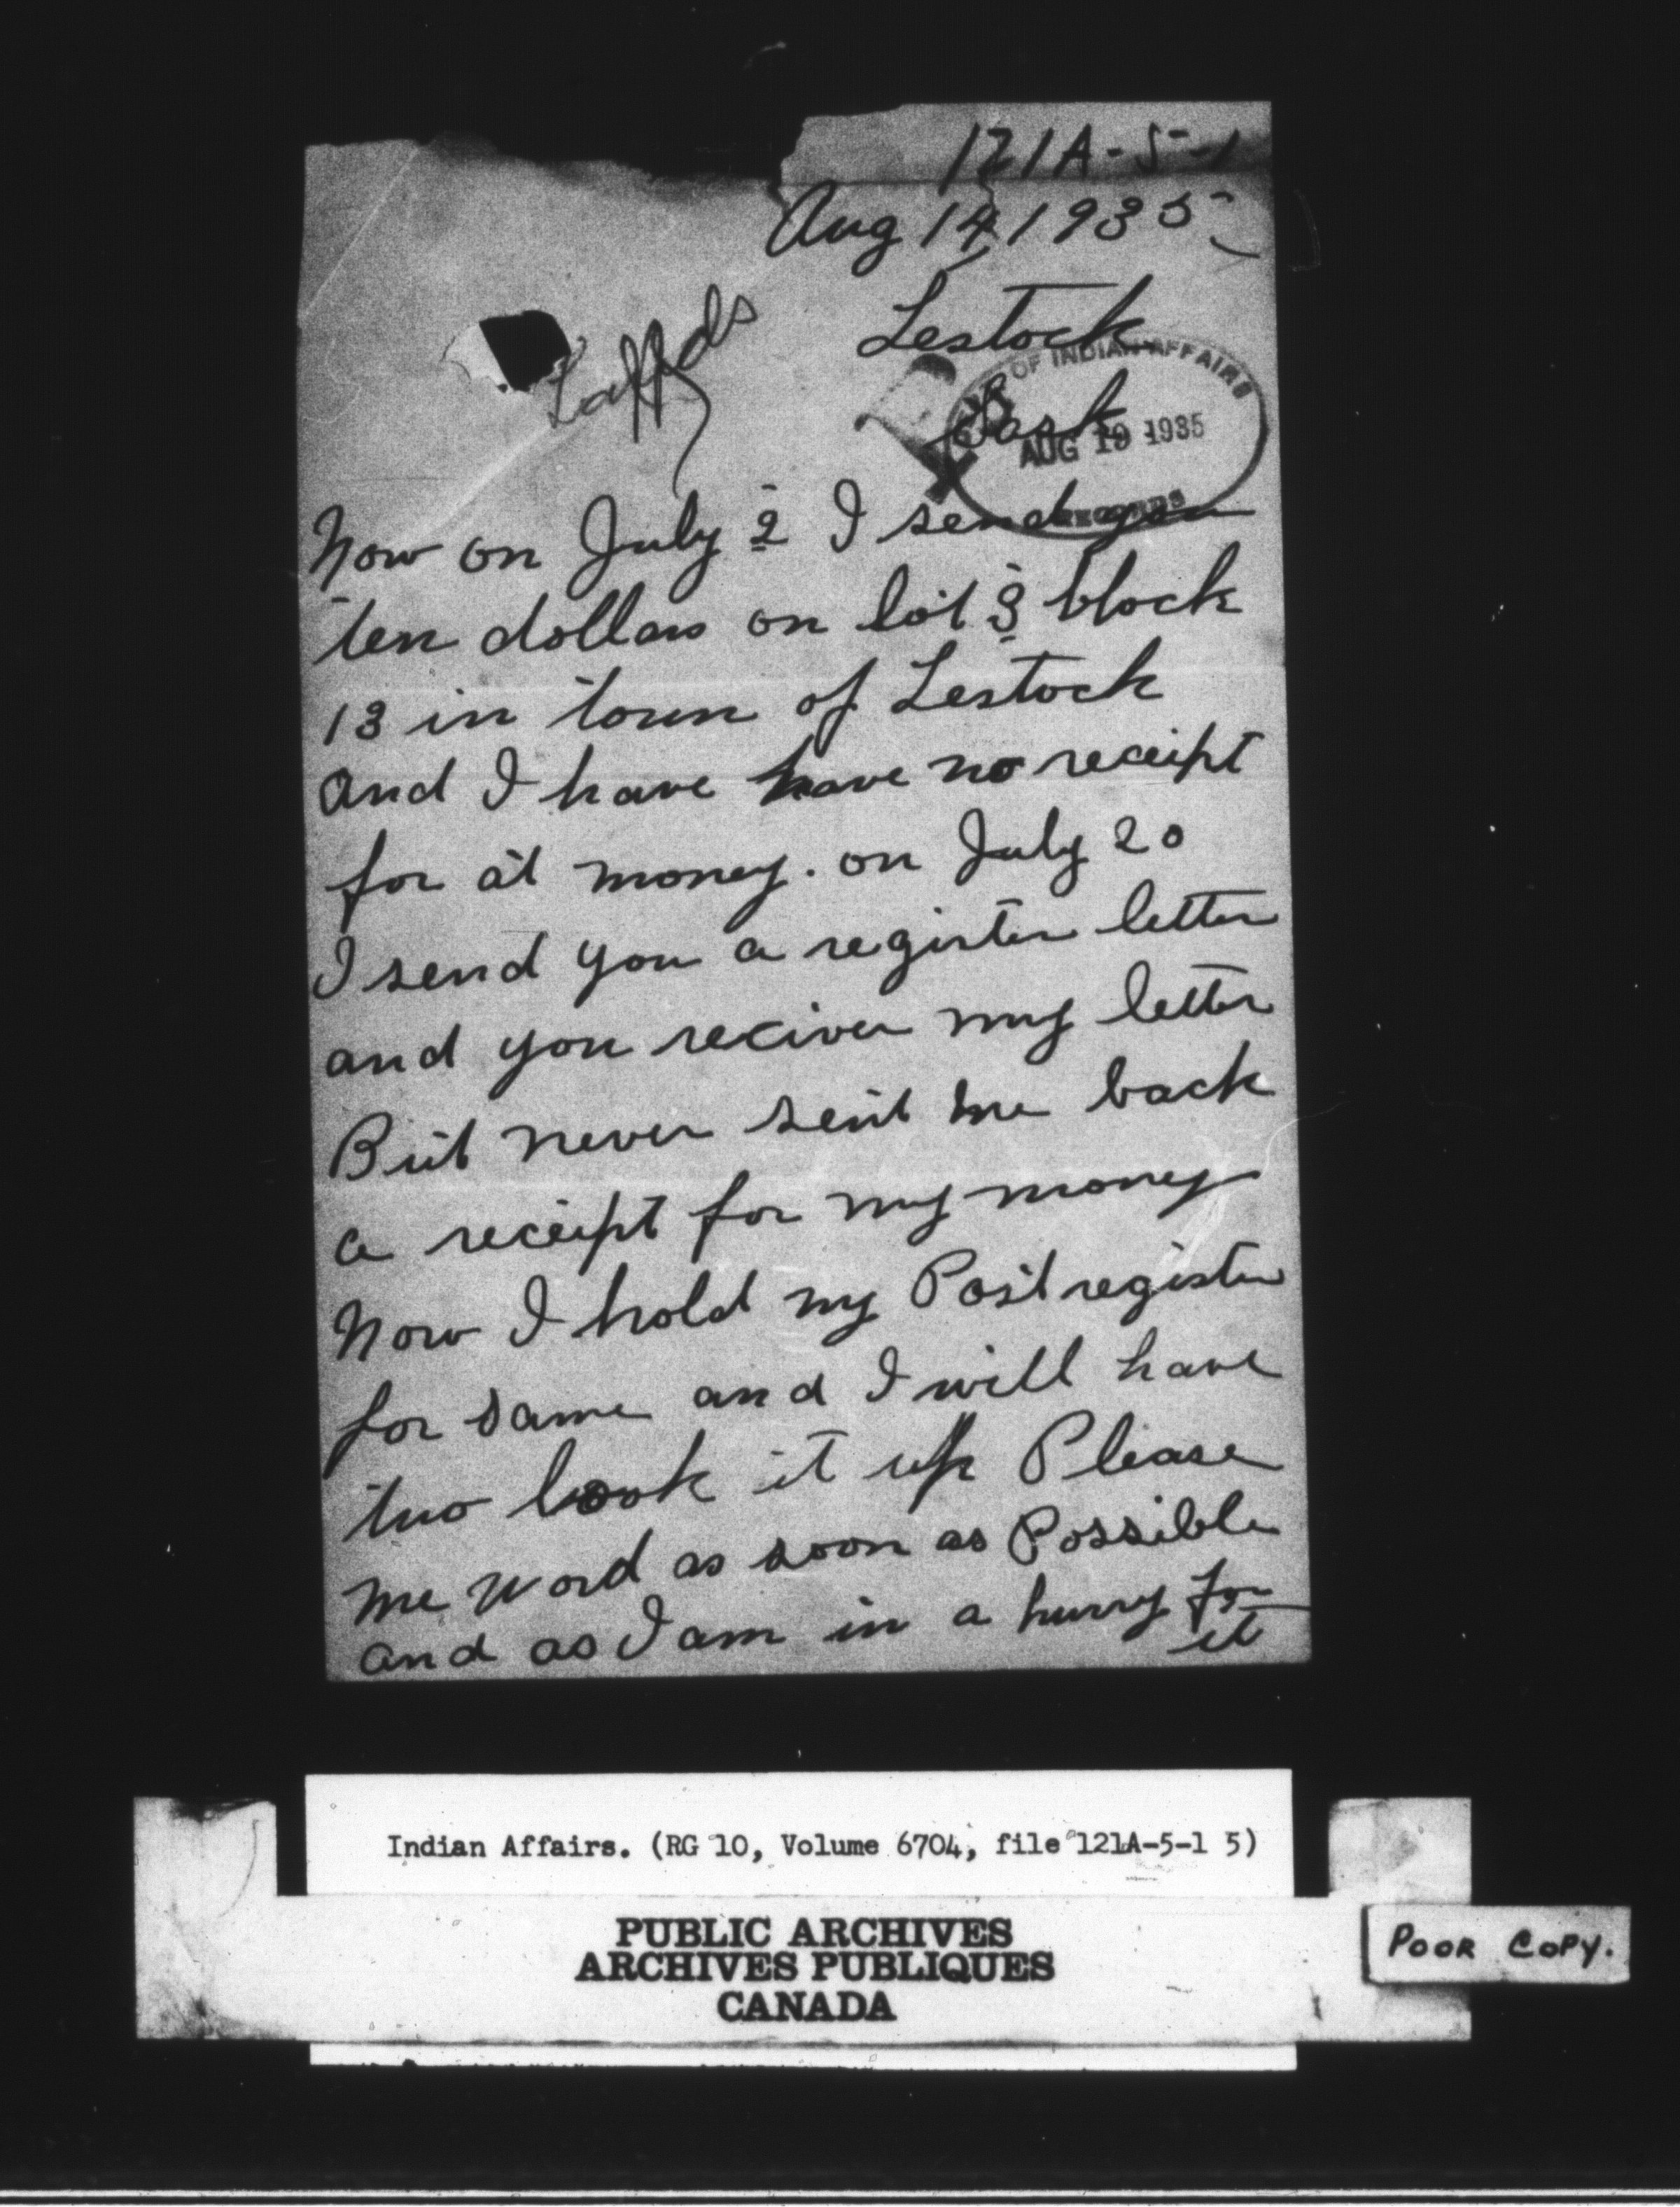 121A-5-1
Aug 14, 1935
Lestock
Sask
OF INDIAN AFFAIRS
AUG 19 1935
RECORDS
Now on July 2 I send you
ten dollars on lot 3 block
13 in town of Lestock
And I have have no receipt
for at money. on July 20
I send you a register letter
and you reciver my letter
But never sent me back
a receipt for my money
Now I hold my Post register
for same and I will have
two look it up Please
me word as soon as Possible
and as I am in a hurry for
it
Indian Affairs. (RG 10, Volume 6704, file 121A-5-1 5)
PUBLIC ARCHIVES
ARCHIVES PUBLIQUES
CANADA
POOR COPY.